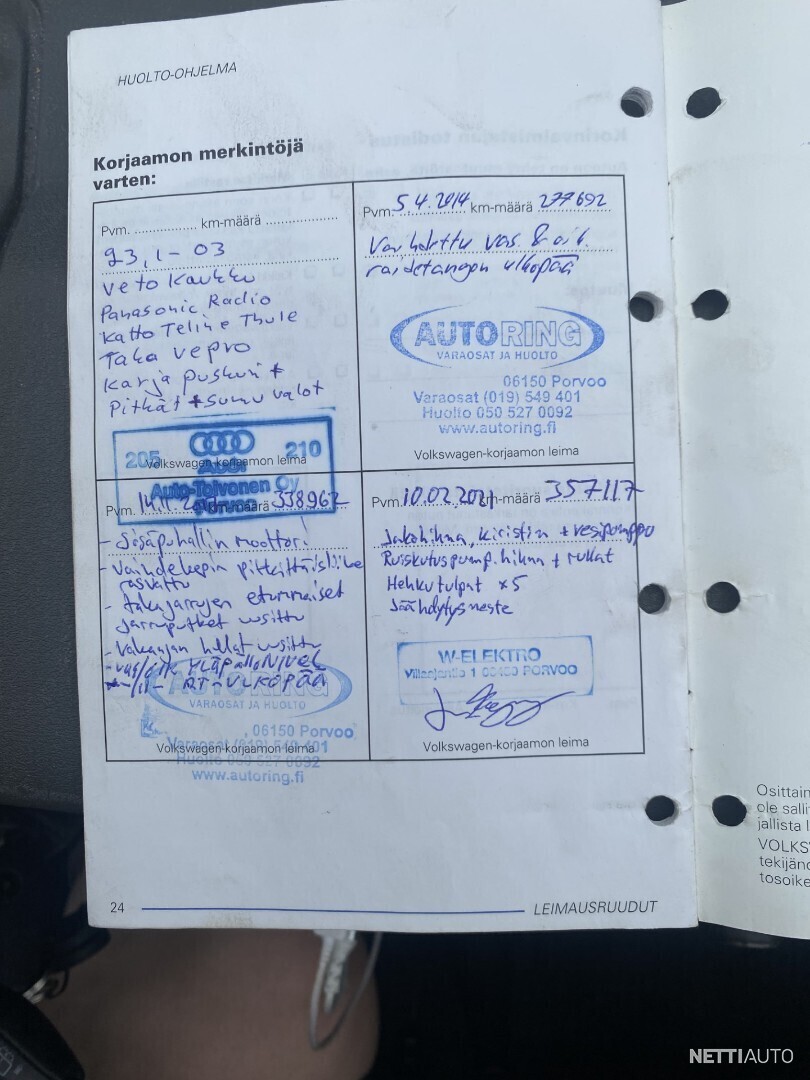 HUOLTO-OHJELMA
Korjaamon merkintöjä
varten:
Pvm. km-määrä
23,1-03
veto Koukku
Panasonic Radio
Katto Teline Thule
Taka vepro
Karja puskuri +
Pitkät + sumu valot
205 Audi 210
Volkswagen-korjaamon leima
Auto-Toivonen Oy
Porvoo
Pvm. 5.4.2014 km-määrä 277692
Vaihdettu vas. & oik.
raidetangon ulkopää
AUTORING
VARAOSAT JA HUOLTO
06150 Porvoo
Varaosat (019) 549 401
Huolto 050 527 0092
www.autoring.fi
Volkswagen-korjaamon leima
Pvm. 14.11. km-määrä 338962
- Sisäpuhallin moottori
- Vaihdekepin pitkittäisliike
rasvattu
- takajarrujen etummaiset
jarruputket uusittu
- Vakaajan uusittu
- vas/oik YLÄpalloNIVEL
-11- RT-ULKOPÄÄ
AUTORING
VARAOSAT JA HUOLTO
06150 Porvoo
Varaosat (019) 549 401
Volkswagen-korjaamon leima
Huolto 050 527 0092
www.autoring.fi
Pvm. 10.02.2021 km-määrä 357117
Jakohihna, kiristin + vesipumppu
Ruiskutuspump. hihna + rullat
Hehkutulpat x5
Jäähdytysneste
W-ELEKTRO
1 06450 PORVOO
Volkswagen-korjaamon leima
24 LEIMAUSRUUDUT
Osittain
ole salli
jallista l
VOLKS
tekijän
tosoike
NETTIAUTO